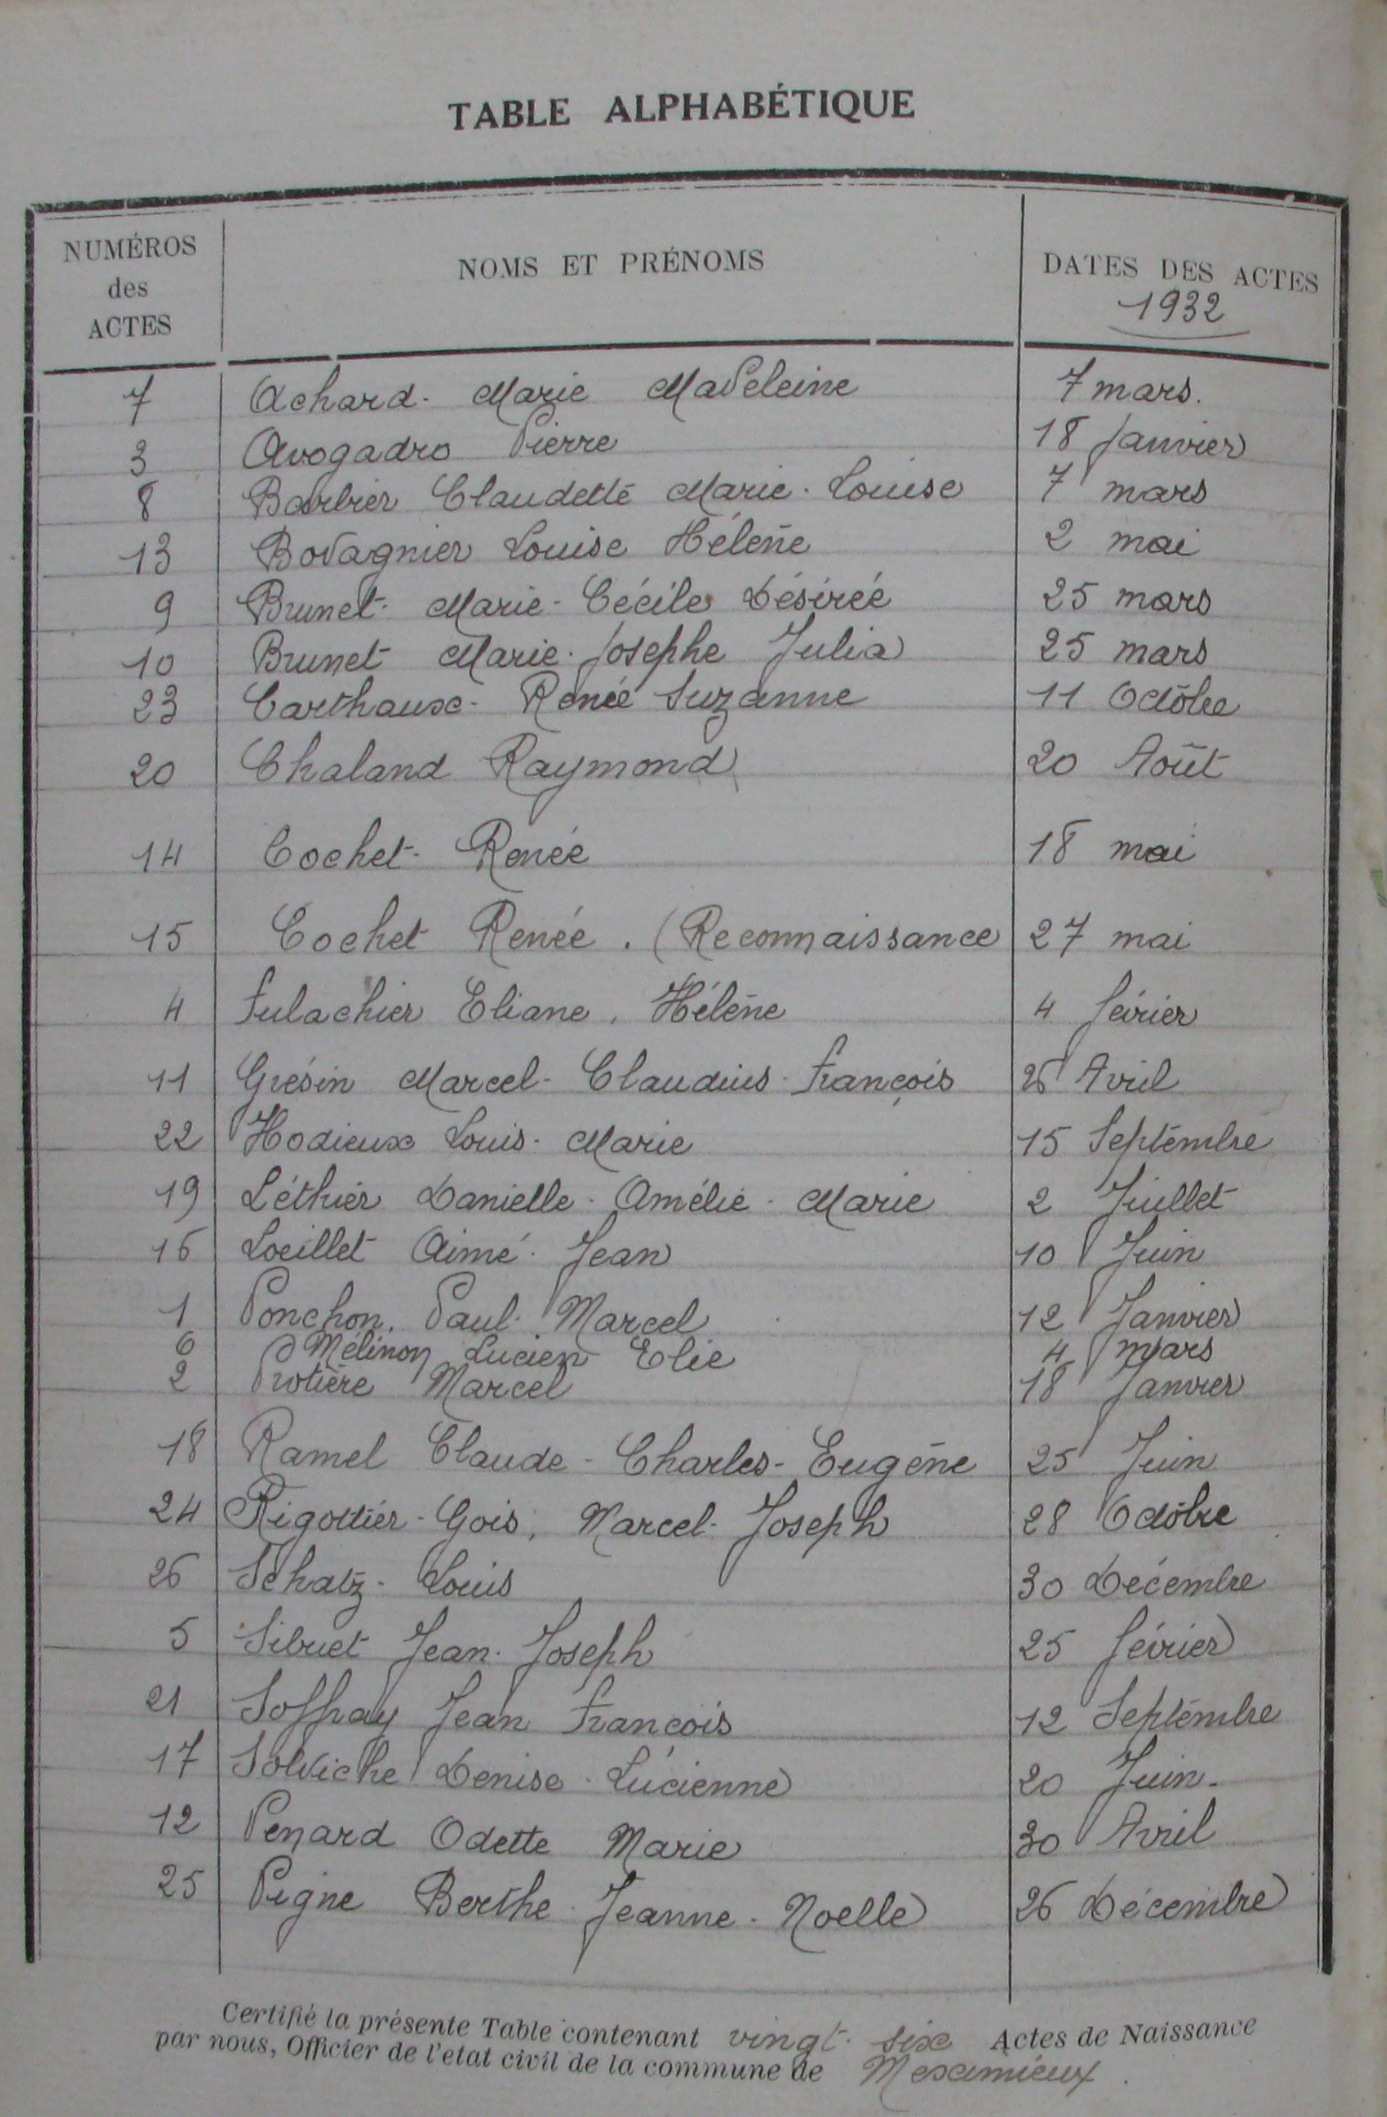 TABLE ALPHABÉTIQUE
NUMÉROS des ACTES NOMS ET PRÉNOMS DATES DES ACTES
1932
7 Achard - Marie Madeleine 7 mars.
3 Avogadro Pierre 18 Janvier
8 Barbier Claudette Marie-Louise 7 mars
13 Bodagnier Louise Hélène 2 mai
9 Brunet - Marie-Cécile Désirée 25 mars
10 Brunet Marie-Josephe Julia 25 mars
23 Carthaux - Renée Suzanne 11 Octobre
20 Chaland Raymond 20 Août
14 Cochet - Renée 18 mai
15 Cochet Renée. (Reconnaissance 27 mai
4 Fulachier Eliane. Hélène 4 février
11 Grésin Marcel-Claudius-François 26 Avril
22 Hodieux Louis-Marie 15 Septembre
19 Léthier Danielle-Amélie-Marie 2 Juillet
16 Loeillet Aimé-Jean 10 Juin
1 Ponchon. Paul-Marcel 12 Janvier
6 Mélinon Lucien Elie 4 mars
2 Protière Marcel 18 Janvier
18 Ramel Claude-Charles-Eugène 25 Juin
24 Rigottier-Gois, Marcel-Joseph 28 Octobre
26 Schatz - Louis 30 Décembre
5 Sibuet Jean-Joseph 25 février
21 Soffray Jean François 12 Septembre
17 Denise-Lucienne 20 Juin-
12 Penard Odette Marie 30 Avril
25 Pigne Berthe Jeanne-Noelle 26 Décembre
Certifié la présente Table contenant vingt-six Actes de Naissance
par nous, Officier de l'etat civil de la commune de Meximieux.